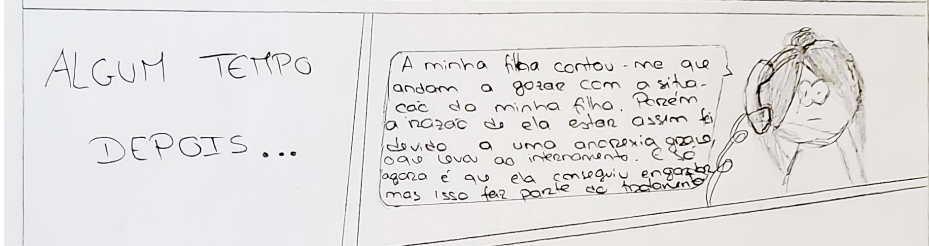 ALGUM TEMPO
DEPOIS...
A minha filha contou-me que
andam a gozar com a situa-
cão da minha filha. Porém
a razão de ela estar assim foi
devido a uma anorexia grave,
o que levou ao internamento. E só
agora é que ela conseguiu engordar
mas isso faz parte do tratamento